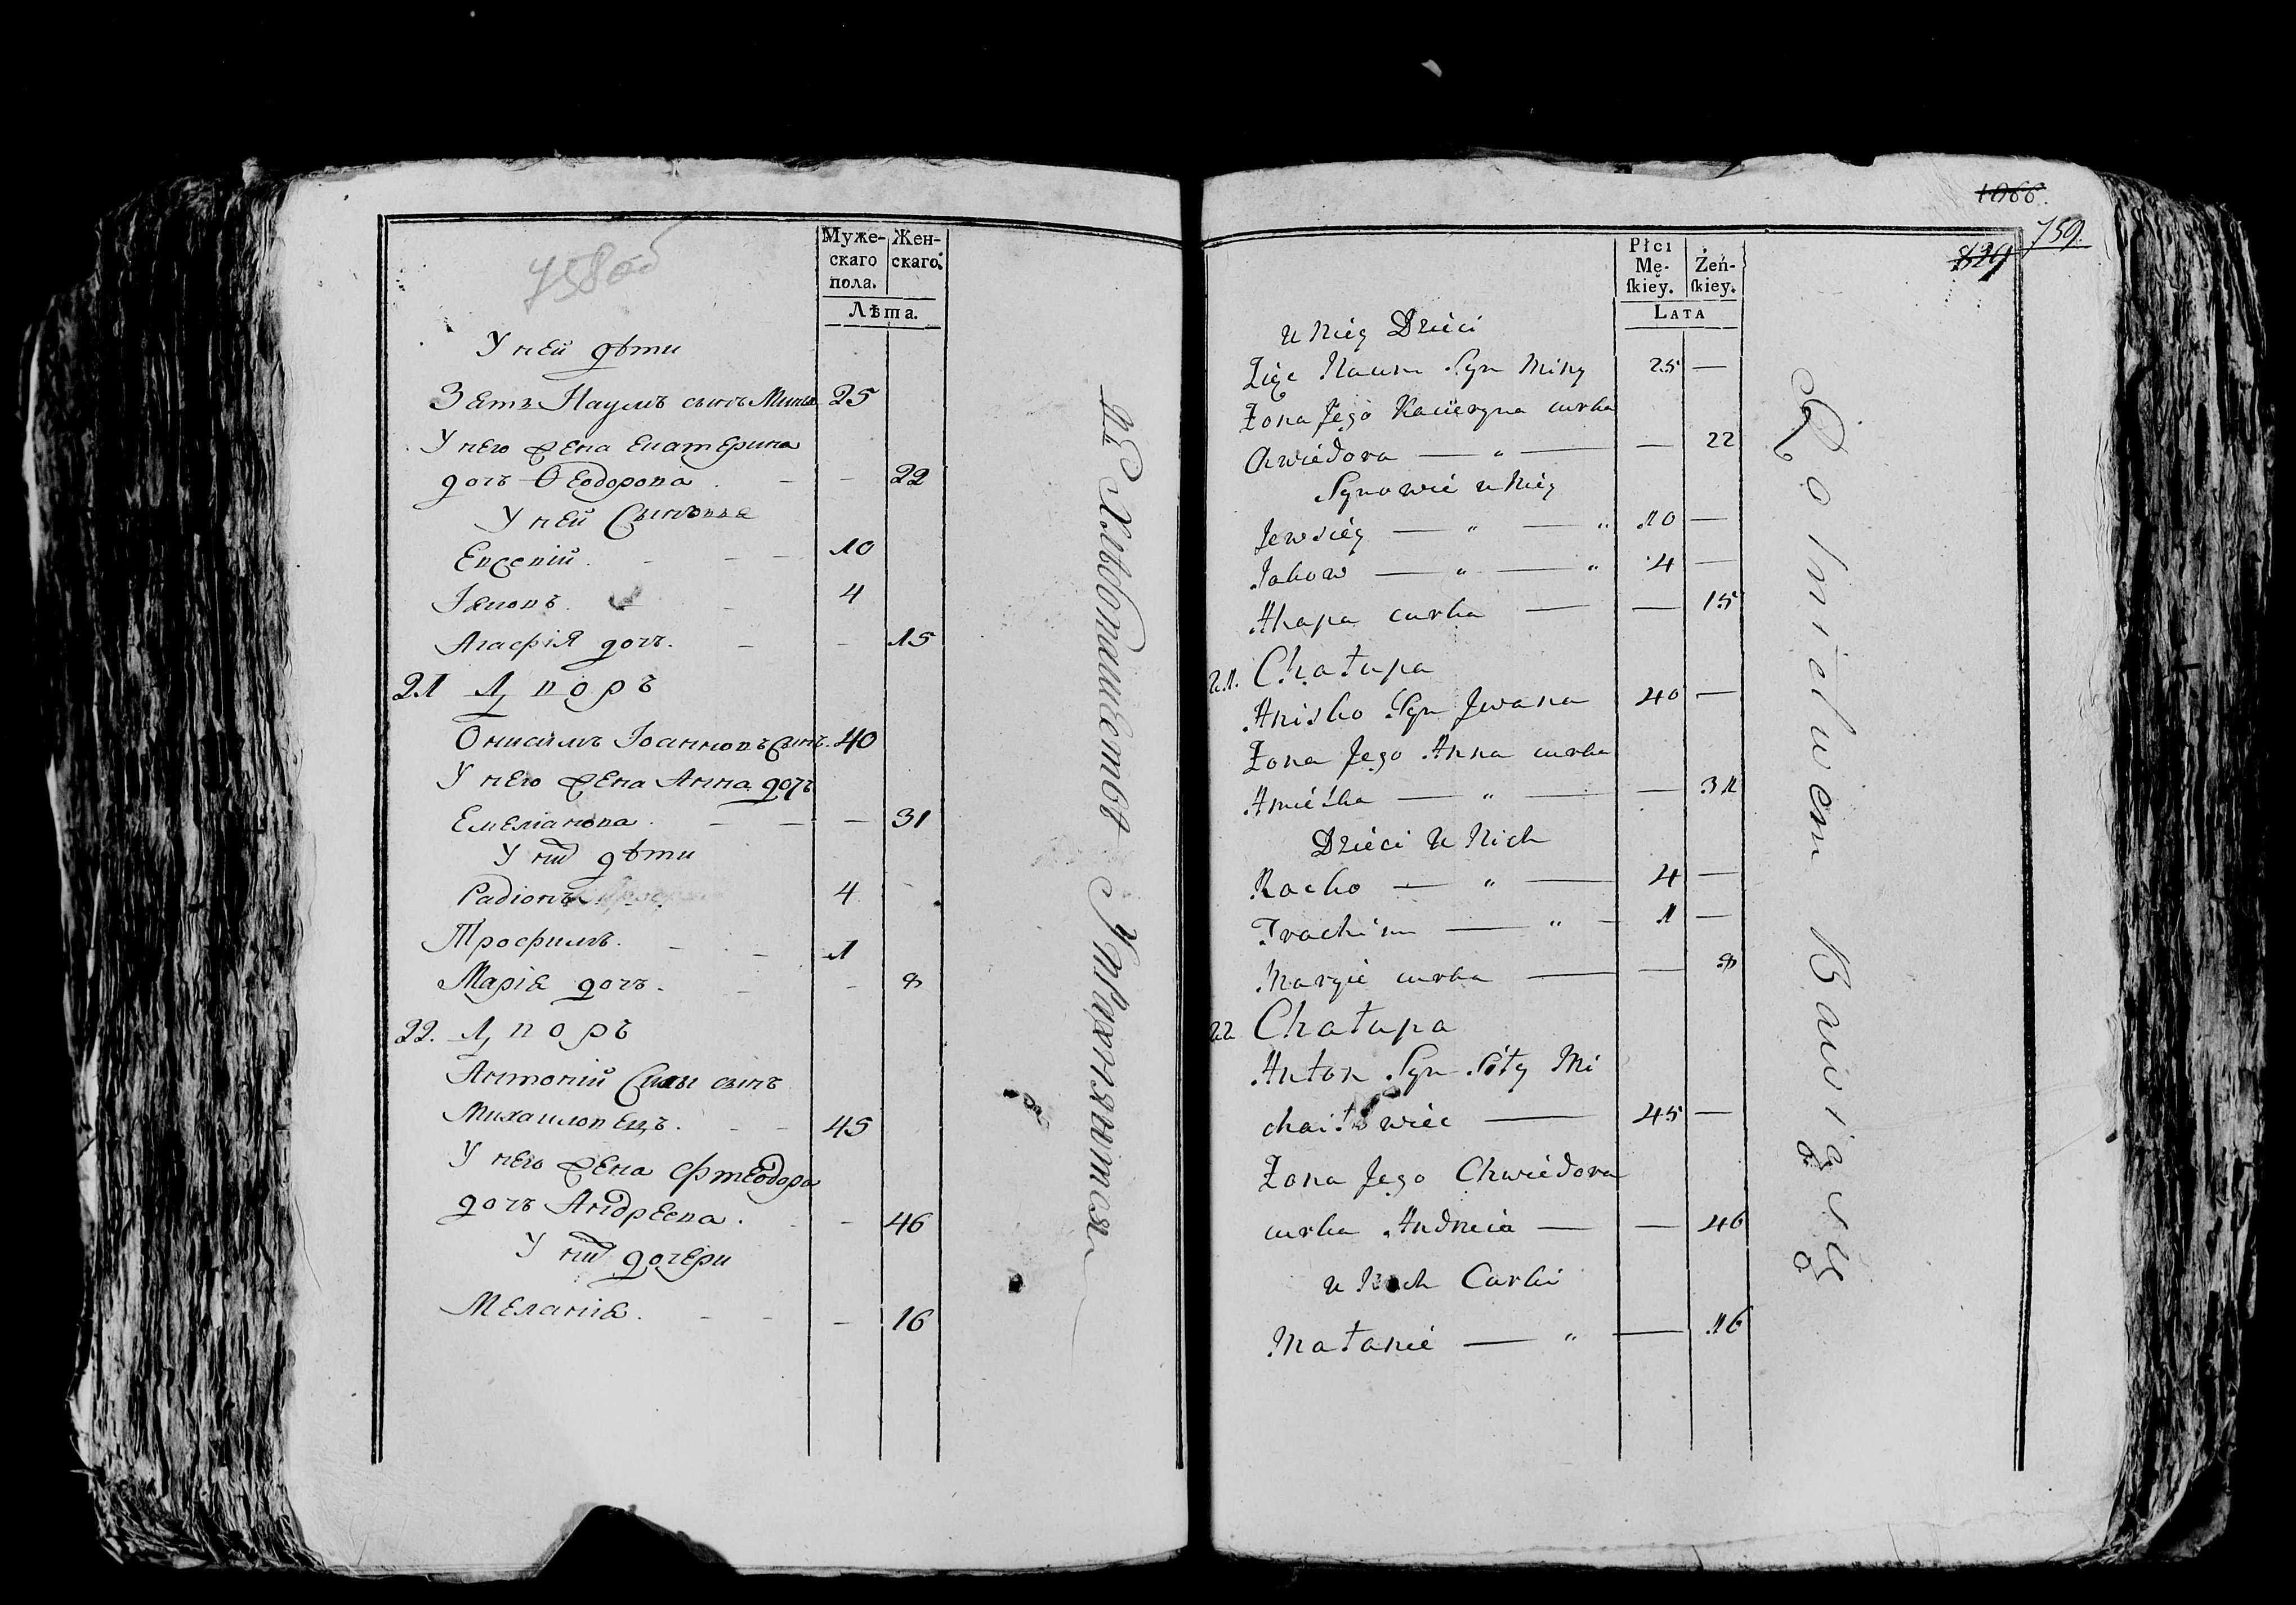 758об
Муже-
скаго
пола.
Жен-
скаго.
Лѣта.
У ней дѣти
Зять Наумъ сынъ Мины 25
У него жена Екатерина
дочь Ѳеодорова - - 22
У ней Сыновья
Евсевій - - 10
Іаковъ - 4
Агафія дочь. - - 15
21 Дворъ
Онисимъ Іоанновъ Сынъ. 40
У него жена Анна дочь
Емеліанова - - - 31
У них дѣти
Радіонъ 4 -
Трофимъ. - - 1
Марія дочь. - - 8
22. Дворъ
Антоній Силы сынъ
Михаиловецъ. - - 45
У него жена Фтеодора
дочь Андреева. - - 46
У них дочери
Меланія. - - - 16
Хлѣбопашествомъ Упражняются
1066.
759.
829
Płci
Mę-
ſkiey.
Żeń-
ſkiey.
LATA
u Niey Dzieci
Zięć Naum Syn Miny 25 —
Żona Jego Kacieryna curka
Chwiedora — " — — 22
Synowie u Niey
Jewsiey — " — " 10 —
Jakow — " — " 4 —
Ahapa curka — — 15
21. Chałupa
Anisko Syn Jwana 40 —
Żona Jego Anna curka
— " — — 31
Dzieci u Nich
Racko — " — 4 —
Trachim — " — 1 —
Maryie curka — — 8
22 Chałupa
Anton Syn Siły Mi
chaiłowiec — 45 —
Żona Jego Chwiedora
curka Andreia — — 46
u Nich Curki
Małanie — " — — 16
Rolnictwem Bawią się